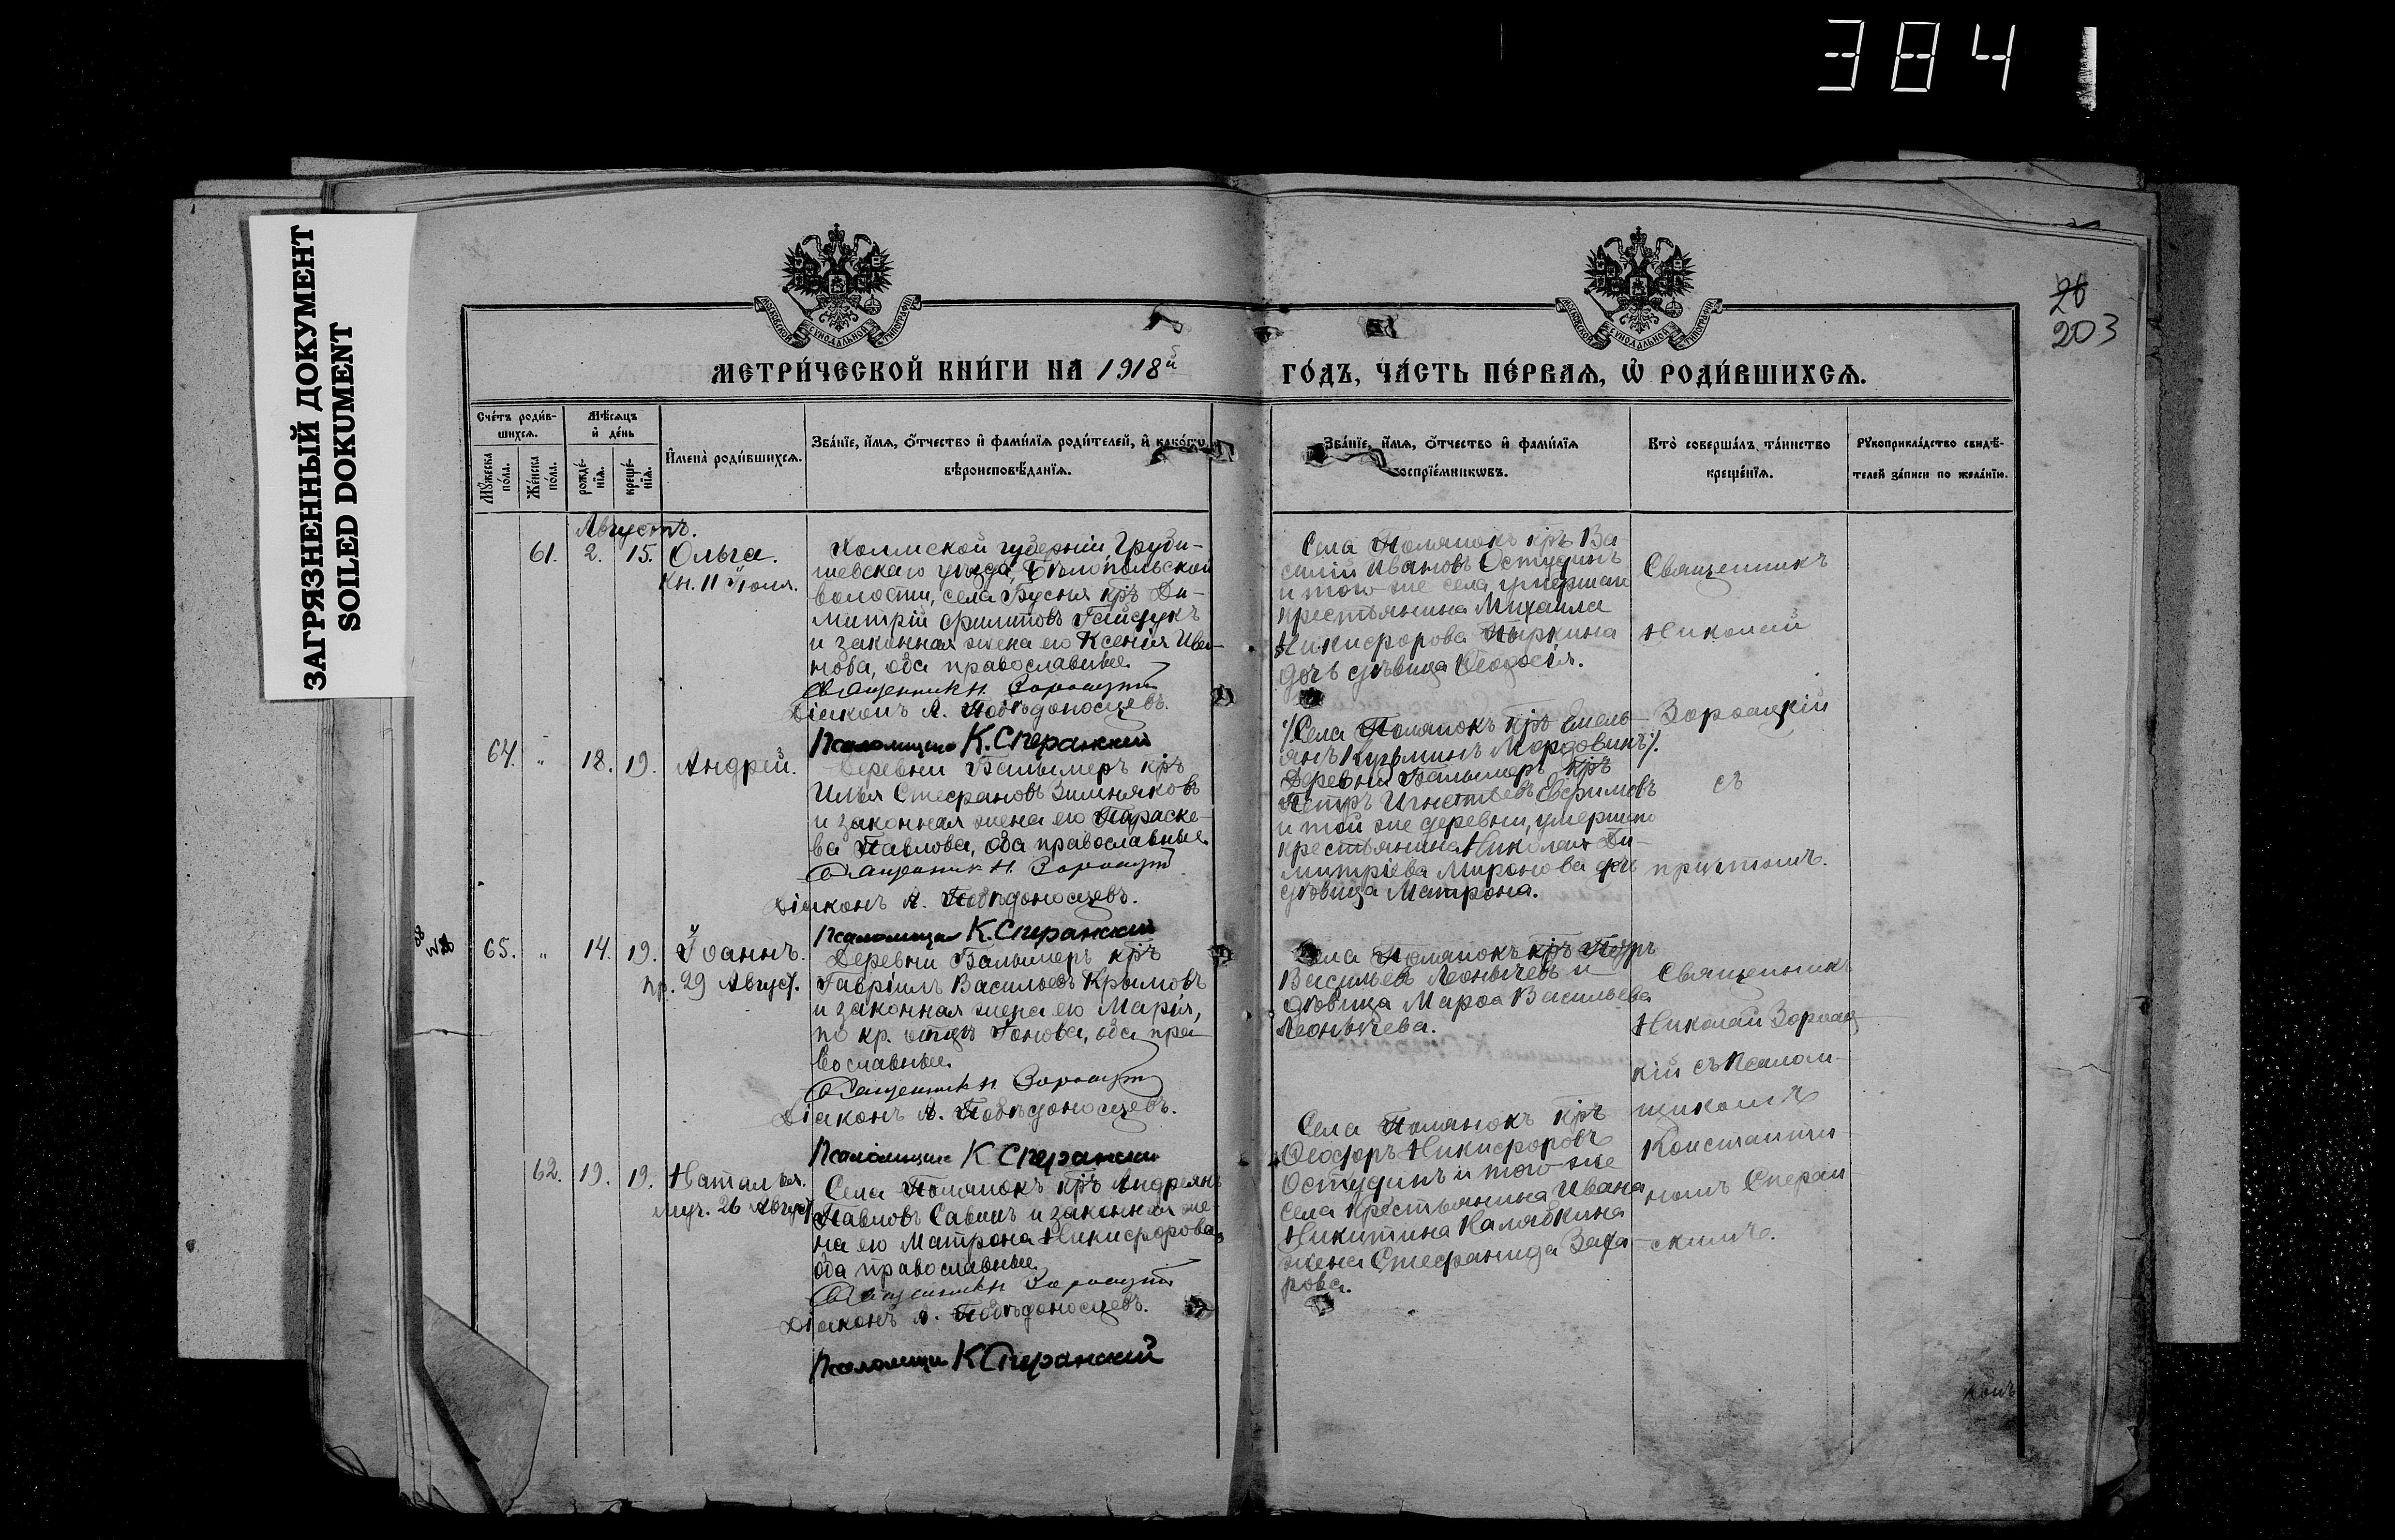 3841
ЗАГРЯЗНЕННЫЙ ДОКУМЕНТ
SOILED DOKUMENT
26
203
МОСКОВСКОЙ СѴНОДАЛЬНОЙ ТИПОГРАФІИ
МОСКОВСКОЙ СѴНОДАЛЬНОЙ ТИПОГРАФІИ
МЕТРИ́ЧЕСКОЙ КНИ́ГИ НА 1918й
ГО́ДЪ, ЧА́СТЬ ПЕ́РВАѦ, Ѽ РОДИ́ВШИХСѦ.
Сче́тъ роди́в-
шихсѧ.
Мѣ́сѧцъ
и҆ де́нь
Мꙋ́жеска по́ла.
Же́нска по́ла.
рожде́-
нїѧ.
креще́-
нїѧ.
И҆мена̀ роди́вшихсѧ.
Зва́нїе, и҆́мѧ, ѻ҆́тчество и҆ фами́лїѧ роди́телей, и҆ како́гѡ
вѣроисповѣ́данїѧ.
Зва́нїе, и҆́мѧ, ѻ҆́тчество и҆ фами́лїѧ
воспрїе́мникѡвъ.
Кто̀ соверша́лъ та́инство
креще́нїѧ.
Рꙋкоприкла́дство свидѣ́-
телей за́писи по жела́нїю.
Августъ.
61. 2. 15. Ольга.
Кн. 11 Іюля.
Холмской губерніи, Груби-
шевскаго уѣзда, Бѣлопольской
волости, села Бусня кр҃ъ Ди-
митрій Филиповъ Гайдукъ
и законная жена его Ксенія Ива-
нова, оба православные.
Священникъ Н. Зороацкій
Діаконъ А. Побѣдоносцевъ.
Псаломщикъ К. Сперанский
Села Полянокъ кр҃ъ Ва-
силій Ивановъ Остудинъ
и того-же села, умершаго
крестьянина Михаила
Никифорова Пыркина
дочь дѣвица Ѳеодосія.
Священникъ
Николай
Зороацкій
съ
причтомъ.
64. " 18. 19. Андрей.
Деревни Балымеръ кр҃ъ
Илья Стефановъ Зимняковъ
и законная жена его Параске-
ва Павлова, оба православные.
Священникъ Н. Зороацкій
Діаконъ А. Побѣдоносцевъ.
Псаломщикъ К. Сперанский
/Села Полянокъ кр҃ъ Емель-
янъ Кузьминъ Мордовинъ/.
Деревни Балымеръ кр҃ъ
Петръ Игнатьевъ Ефимовъ
и той же деревни, умершаго
крестьянина Николая Ди-
митріева Миронова дочь
дѣвица Матрона.
65. " 14. 19. Іоаннъ.
пр. 29 Август.
Деревни Балымеръ кр҃ъ
Гавріилъ Васильевъ Крымовъ
и законная жена его Марія,
по кр. отцѣ Іонова, оба пра-
вославные.
Священникъ Н. Зороацкій
Діаконъ А. Побѣдоносцевъ.
Псаломщикъ К Сперанский
Села Полянокъ кр҃ъ Петръ
Васильевъ Леонычевъ и
дѣвица Марѳа Васильева
Леонычева.
Священникъ
Николай Зороац-
кій съ псалом-
щикомъ
Константи-
номъ Сперан-
скимъ.
62. 19. 19. Наталія.
муч. 26 Август.
Села Полянокъ кр҃ъ Андреянъ
Павловъ Савинъ и законная же-
на его Матрона Никифорова,
оба православные.
Священникъ Н. Зороацкій
Діаконъ А. Побѣдоносцевъ.
Псаломщикъ К Сперанский
Села Полянокъ кр҃ъ
Ѳеодоръ Никифоровъ
Остудинъ и того-же
села крестьянина Ивана
Никитина Калябкина
жена Стефанида Заха-
рова.